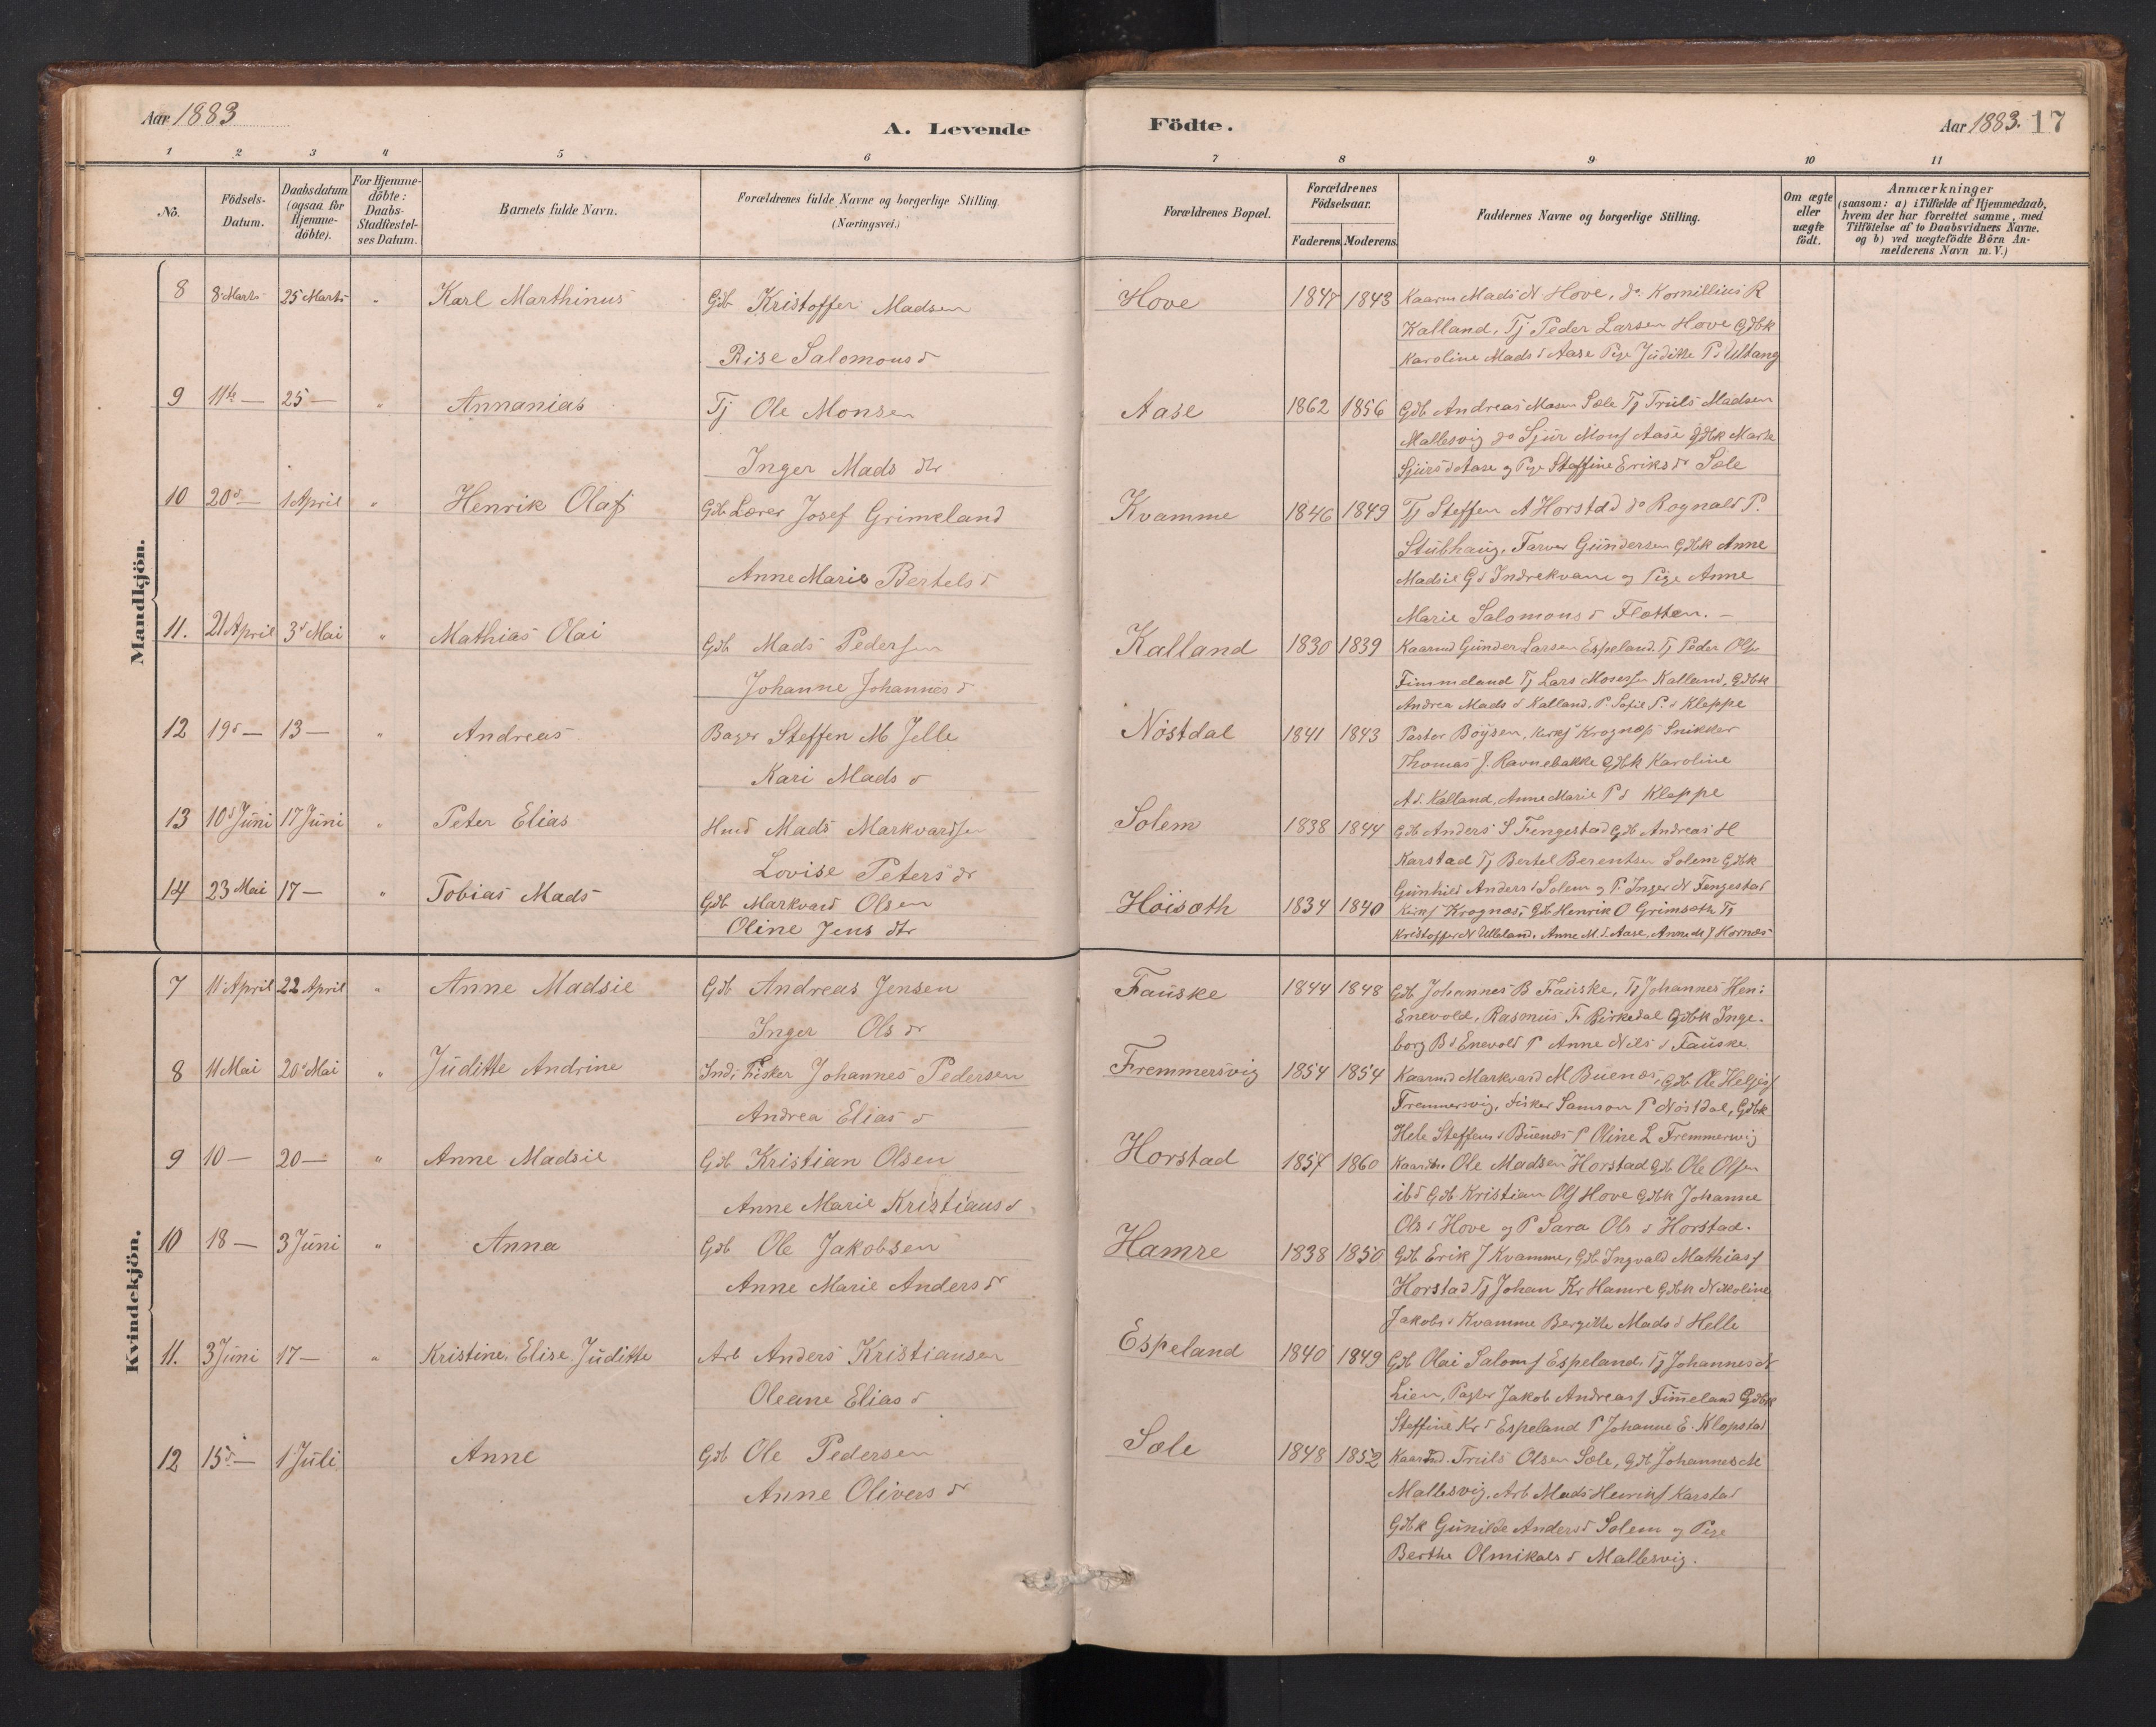 Aar 1883
A. Levende
Födte.
Aar 1883. 17
1 2 3 4 5 6 7 8 9 10 11
No.
Födsels-
Datum.
Daabsdatum
(ogsaa for
Hjemme-
döbte).
For Hjemme-
döbte:
Daabs-
Stadfæstel-
ses Datum.
Barnets fulde Navn.
Forældrenes fulde Navne og borgerlige Stilling.
(Næringsvei.)
Forældrenes Bopæl.
Forældrenes
Födselsaar.
Faderens. Moderens.
Faddernes Navne og borgerlige Stilling.
Om ægte
eller
uægte
födt.
Anmærkninger
(saasom: a) i Tilfælde af Hjemmedaab,
hvem der har forrettet samme, med
Tilföielse af to Daabsvidners Navne.
og b) ved uægtefödte Börn An-
melderens Navn m. V.)
Mandkjön.
8 8 Marts 25 Marts " Karl Marthinus Gdb Kristoffer Madsen Hove 1847 1843 Kaarm Mads N Hove, do. Kornillius R
Kalland, Tj Peder Larsen Hove Gdbk
Rise Salomons d Karoline Mads d Aase Pige Juditte P d Ultang
9 11te — 25 — " Annanias Tj Ole Monsen Aase 1862 1856 Gdb Andreas Masen Sæle Tj Truls Madsen
Mallesvig do Sjur Mons Aase Gdbk Marte
Inger Mads dtr Sjurs d Aase og Pige Steffine Eriks dr Sæle
10 20d — 1 April " Henrik Olaf Gdb Lærer Josef Grimeland Kvamme 1846 1849 Tj Steffen A Horstad do Rognald P.
Stubhaug, Farver Gundersen Gdbk Anne
Anne Marie Bertels d Madsie G d Indrekvam og Pige Anne
Marie Salomons d Flotten. —
11. 21 April 3d Mai " Mathias Olai Gdb Mads Pedersen Kalland 1830 1839 Kaarmd Gunder Larsen Espeland Tj Peder Ols
Fimmeland Tj Lars Mosessen Kalland, Gdbk
Johanne Johannes d Andrea Mads d Kalland, P. Sofie P. d Kleppe
12 19d — 13 — " Andreas Bager Steffen M Jelle Nöstdal 1841 1843 Pastor Böysen, Kirks Krognæs Snikker
Kari Mads d Thomas J. Ravnebakke Gdbk Karoline
A d. Kalland, Anne Marie P d Kleppe
13 10d Juni 17 Juni " Peter Elias Hmd Mads Markvardsen Solem 1838 1844 Gdb Anders S Fengestad Gdb Andreas H
Karstad Tj Bertel Berentsen Solem Gdbk
Lovise Peters dr Gunhild Anders d Solem og P. Inger N Fengestad
14 23 Mai 17 — " Tobias Mads Gdb Markvard Olsen Höisæth 1834 1840 Kirks Krognæs, Gdb Henrik O Grimsæth Tj
Oline Jens dtr Kristoffer N Ulleland. Anne M. d. Aase, Anne M J Hornæs
Kvindekjön.
7 11 April 22 April " Anne Madsie Gdb Andreas Jensen Fauske 1844 1848 Gdb Johannes B Fauske, Tj Johannes Hen:
Enevold, Rasmus F. Birkedal Gdbk Inge-
Inger Ols dr borg B d Enevold P Anne Nils d Fauske.
8 11 Mai 20d Mai " Juditte Andrine Ind. Fisker Johannes Pedersen Fremmersvig 1854 1854 Kaarmd Markvard M Buenæs, Gdb Ole Helgess
Fremmersvig, Fisker Samson P Nöstdal, Gdbk
Andrea Elias d Hele Steffens d Buenæs P Oline L Fremmersvig
9 10 — 20 — " Anne Madsie Gdb Kristian Olsen Horstad 1857 1860 Kaardm. Ole Madsen Horstad Gdb Ole Olsen
ibd Gdb Kristian Ols Hove Gdbk Johanne
Anne Marie Kristians d. Ols d Hove og P Sara Ols d Horstad.
10 18 — 3 Juni " Anna Gdb Ole Jakobsen Hamre 1838 1850 Gdb Erik J Kvamme, Gdb Ingvald Mathiass
Anne Marie Anders dr Horstad Tj Johan Kr Hamre Gdbk Nikoline
Jakobs d Kvamme Bergitte Mads d Helle
11. 3 Juni 17 — " Kristine, Elise Juditte Arb Anders Kristiansen Espeland 1840 1849 Gdb Olai Saloms Espeland, Tj Johannes N
Oleane Elias d Lien, Pagter Jakob Andreass Fimmeland Gdbk
Steffine Kr d Espeland P Johanne E. Klopstad
12 15d — 1 Juli Anne Gdb Ole Pedersen Sæle 1848 1852 Kaarmd. Truls Olsen Sæle, Gdb Johannes M
Anne Olivers dr Mallesvig, Arb Mads Henriks Karstad
Gdbk Gunilde Anders d Solem og Pige
Berthe Olmikals d Mallesvig.